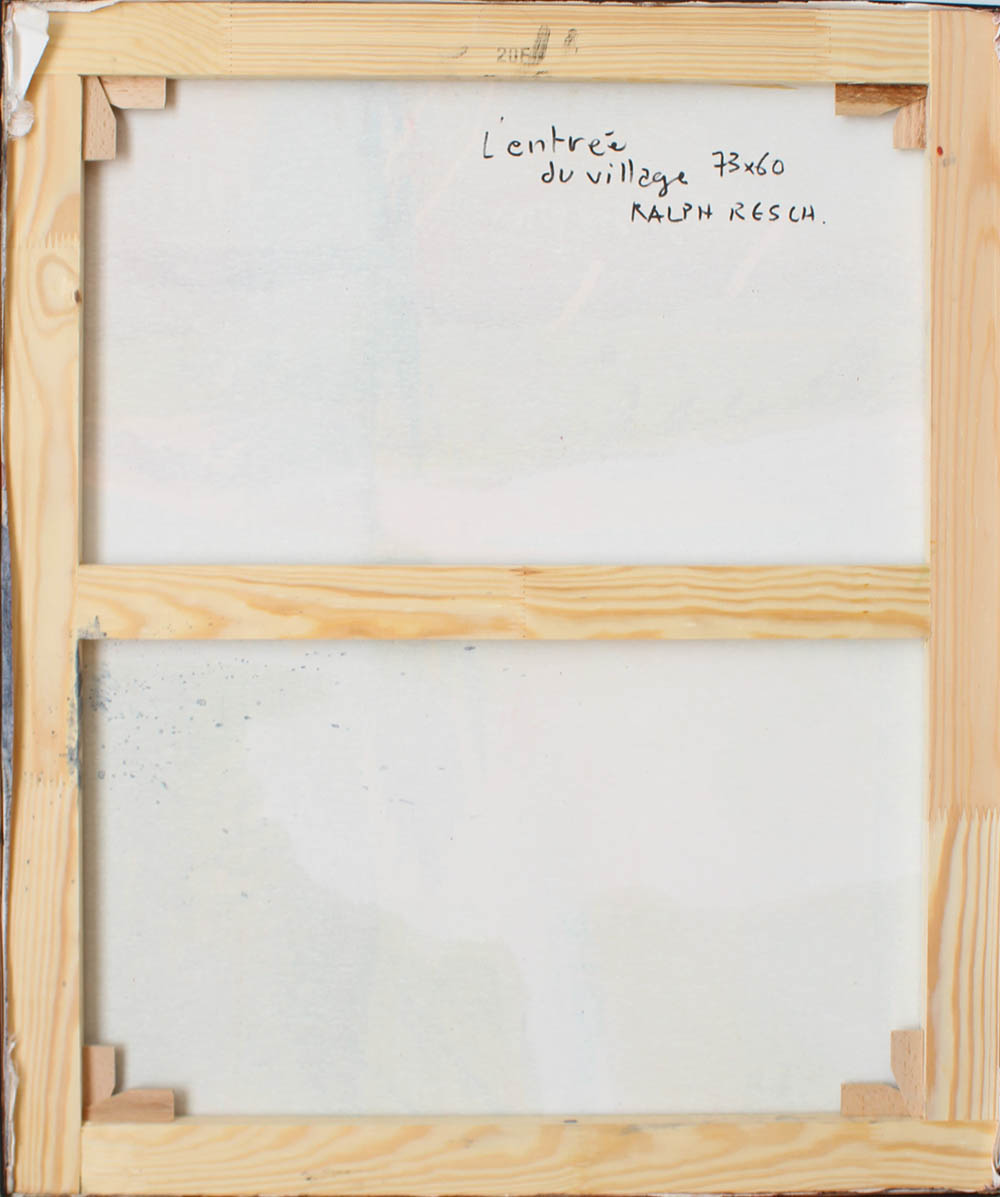 20F
L'entrée
du village 73x60
RALPH RESCH.